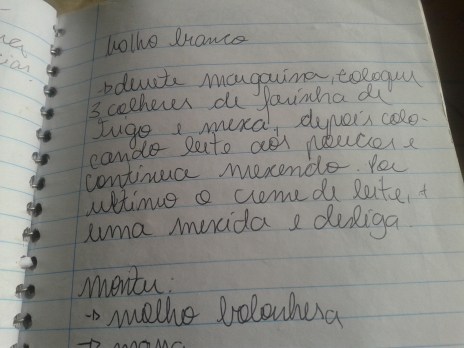 Molho branco
→ derrete margarina, coloque
3 colheres de farinha de
trigo e mexa, depois colo-
cando leite aos poucos e
continua mexendo. Por
ultimo o creme de leite, +
uma mexida e desliga.
montar:
→ molho bolonhesa
→ massa